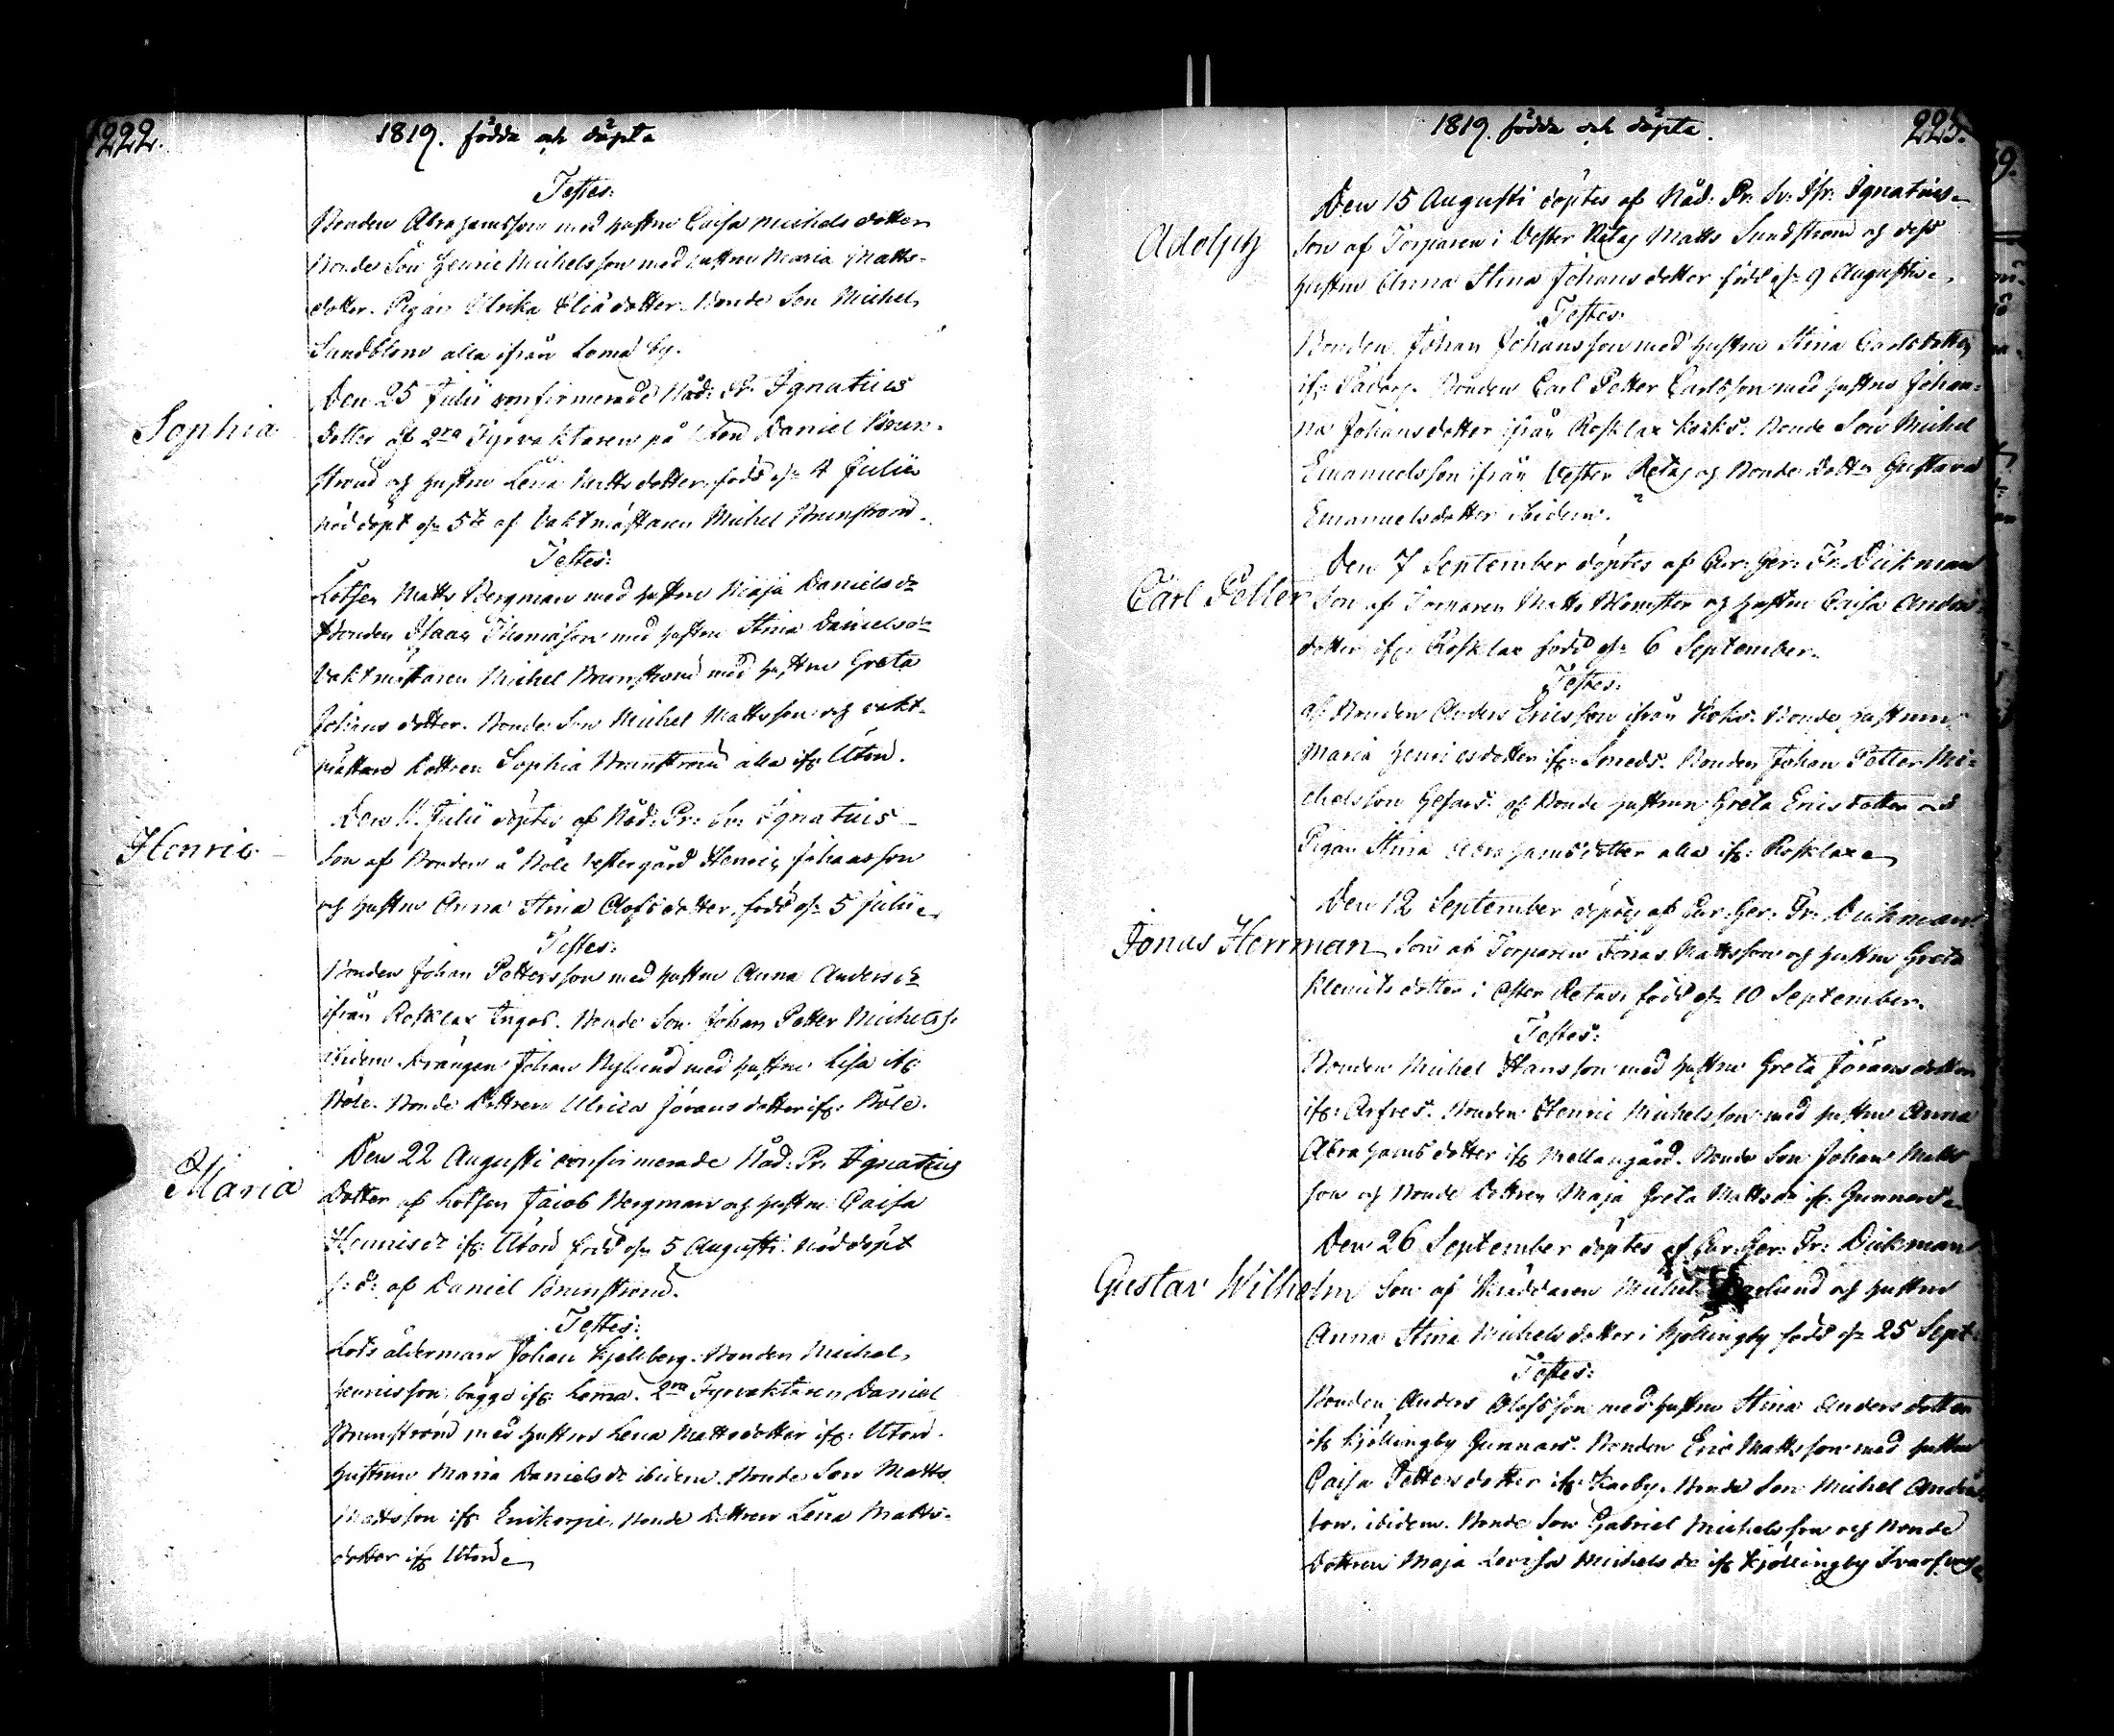 222.
1819. födde och döpte
Testes:
Bonden Abrahamsson med hustru Caisa Michels dotter
Bonde Son Henric Michelsson med hustru Maria Matts-
dotter. Pigan Ulrika Eliæ dotter. Bonde Son Michel
Sundblom alla ifrån Lemo by.
Sophia
Den 25 Julii confirmerade Nåd: Pr. Ignatius
dotter af 2ra Fyrvaktaren på Utön Daniel Brun-
ström och hustru Lena Matts dotter, född d: 4 Julii
nöddöpt d: 5te af Vaktmästaren Michel Brunström.
Testes:
Lotsen Matts Bergman med hustru Maja Daniels dr
Bonden Isaac Thomasson med hustru Stina Daniels dr
Vaktmästaren Michel Brunström med hustru Greta
Johans dotter. Bonde Son Michel Mattsson och vakt-
mästare Dottren Sophia Brunström alla ifr: Utön.
Henric
Den 11 Julii döptes af Nåd: Pr: Sv: Ignatius
Son af Bonden å Böle Vestergård Henric Johansson
och hustru Anna Stina Olofs dotter, född d: 5 Julii
Testes:
Bonden Johan Pettersson med hustru Anna Anders dr
ifrån Rosklax Ingos. Bonde Son Johan Petter Michelss.
ibidem. Drängen Johan Nylund med hustru Lisa ifr:
Böle. Bonde Dottren Ulrica Jörans dotter ifr: Böle.
Maria
Den 22 Augusti confirmerade Nåd: Pr. Ignatius
Dotter af Lotsen Jacob Bergman och hustru Caisa
Henrics dr ifr: Utön född d: 5 Augusti. Nöddöpt
s: d: af Daniel Brunström.
Testes:
Lots ålderman Johan Kjellberg. Bonden Michel
Henricsson, bägge ifr: Lemo. 2ra Fyrvaktaren Daniel
Brunström med hustru Lena Matts dotter ifr: Utön.
hustrun Maria Daniels dr ibidem. Bonde Son Matts
Mattsson ifr: Enskorpi. Bonde Dottren Lena Matts-
dotter ifr: Utön
1819. födde och döpte.
223.
Adolph
Den 15 Augusti döptes af Nåd: Pr: Sv: Hr: Ignatius
Son af Torparen i Vester Retas Matts Sundström och dess
hustru Anna Stina Johans dotter född d: 9 Augusti
Testes:
Bonden Johan Johansson med hustru Stina Carlsdotter
ifr: Bonden Carl Petter Carlsson med hustru Johan-
na Johansdotter ifrån Rosklax Kocks. Bonde Son Michel
Emanuelsson ifrån Vester Retas och Bonde Dottr Gustava
Emanuelsdotter ibidem.
Carl Petter
Den 7 September döptes af Cur: Ger: Fr: Dickman
Son af Torparen Matts Blomster och hustru Caisa Anders
dotter ifr: Rosklax född d: 6 September.
Testes:
af Bonden Anders Ericsson ifrån Kocks. Bonde hustrun
Maria Henricsdotter ifr: Smeds. Bonden Johan Petter Mi-
chelsson af Bonde hustrun Greta Ericsdotter och
Pigan Stina Abrahamsdotter alla ifr: Rosklax
Jonas Herrman
Den 12 September döptes af Cur: Ger: Fr: Dickman
Son af Torparen Jonas Mattsson och hustru Greta
Klemits dotter i Öster Retas född d: 10 September.
Testes:
Bonden Michel Hansson med hustru Greta Jöransdotter
ifr: Arfves. Bonden Henric Michelsson med hustru Anna
Abrahams dotter ifr: Mellangård. Bonde Son Johan Matts
son och Bonde Dottren Maja Greta Matts dr ifr: Gunnars
Gustav Wilhelm
Den 26 September döptes af Cur: Ger: Fr: Dickman
Son af Skräddaren Michel och hustru
Anna Stina Michels dotter i Kjöllingby född d: 25 Sept:
Testes:
Bonden Anders Olofsson med hustru Stina Anders dotter
ifr: Kjöllingby Gunnars. Bonden Eric Mattsson med hustru
Caisa Petters dotter ifr: Karby. Bonde Son Michel Anders
son, ibidem. Bonde Son Gabriel Michelsson och Bonde
Dottren Maja Lovisa Michels dr ifr: Kjöllingby Svarfvars